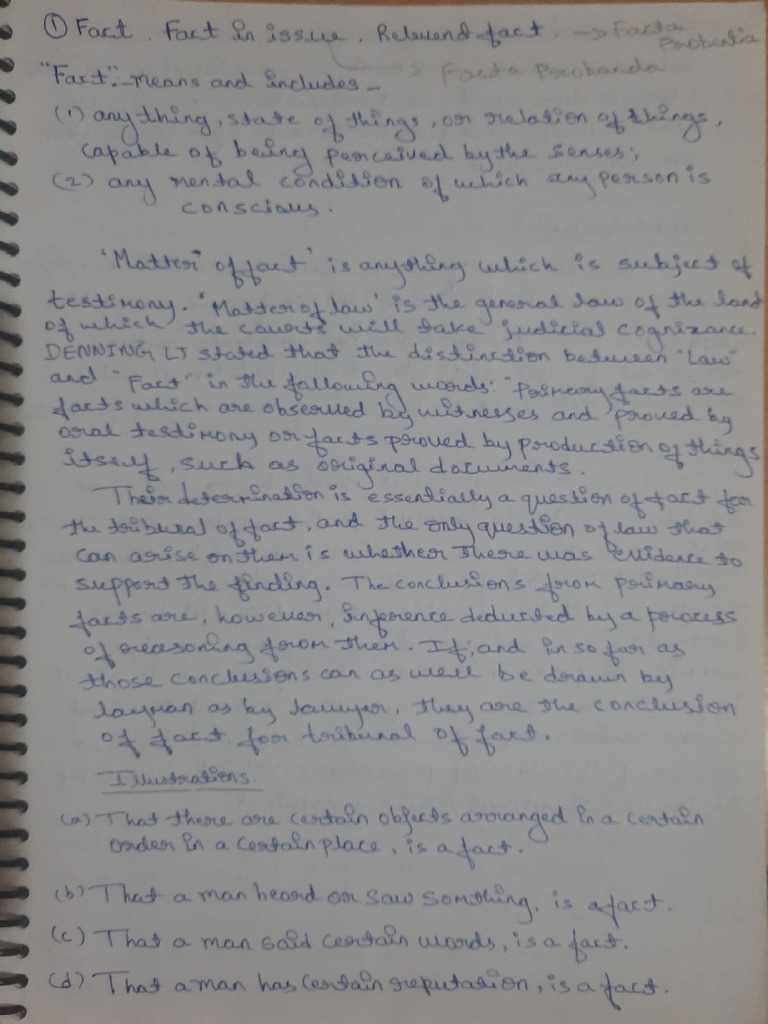 ① Fact. Fact in issue. Relevend fact. → Facta Probentia
→ Facta Probanda
"Fact"- means and includes -
(1) anything, state of things, or relation of things,
capable of being perceived by the senses;
(2) any mental condition of which any person is
conscious.
'Matter of fact' is anything which is subject of
testimony. 'Matter of law' is the general law of the land
of which the courts will take judicial cognizance.
DENNING LJ stated that the distinction between "Law"
and "Fact" in the following words: "Primary facts are
facts which are observed by witnesses and proved by
oral testimony or facts proved by production of things
itself, such as original documents.
Their determination is essentially a question of fact for
the tribunal of fact, and the only question of law that
can arise on them is whether there was evidence to
support the finding. The conclusions from primary
facts are, however, inference deducted by a process
of reasoning from them. If, and in so far as
those conclusions can as well be drawn by
layman as by lawyer, they are the conclusion
of fact for tribunal of fact.
Illustrations.
(a) That there are certain objects arranged in a certain
order in a certain place, is a fact.
(b) That a man heard or saw somthing, is a fact.
(c) That a man said certain words, is a fact.
(d) That a man has certain reputation, is a fact.